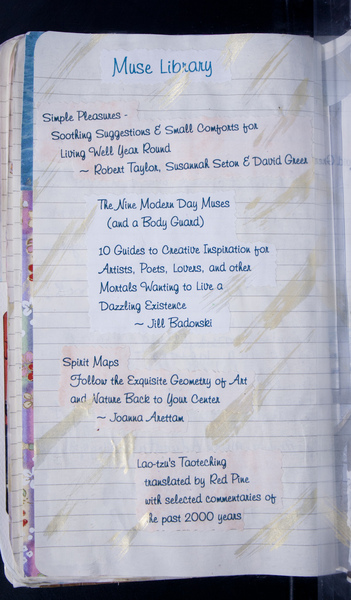 Muse Library
Simple Pleasures -
Soothing Suggestions & Small Comforts for
Living Well Year Round
~ Robert Taylor, Susannah Seton & David Greer
The Nine Modern Day Muses
(and a Body Guard)
10 Guides to Creative Inspiration for
Artists, Poets, Lovers, and other
Mortals Wanting to Live a
Dazzling Existence
~ Jill Badonski
Spirit Maps
Follow the Exquisite Geometry of Art
and Nature Back to Your Center
~ Joanna Arettam
Lao-tzu's Taoteching
translated by Red Pine
with selected commentaries of
the past 2000 years